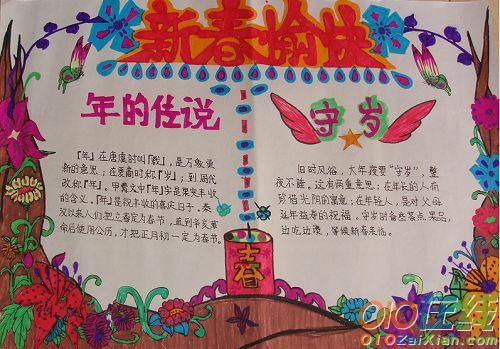 新春愉快
年的传说
「年」在唐虞时叫「载」，是万象更
新的意思；在夏商时称「岁」；到周代
改称「年」。甲骨文中「年」字是果实丰收
的含义。「年」是祝丰收的喜庆日子。秦
汉以来人们把立春定为春节，直到辛亥革
命后使用公历，才把正月初一定为春节。
守岁
旧时风俗，大年夜要“守岁”，整
夜不睡。这有两重意思；在年长的人有
珍惜光阴的寓意；在年轻人，是对父母
延年益寿的祝福。守岁时备些茶点果品，
边吃边谈，等候新春来临。
春
QIQ在线
QIQZaiXian.com